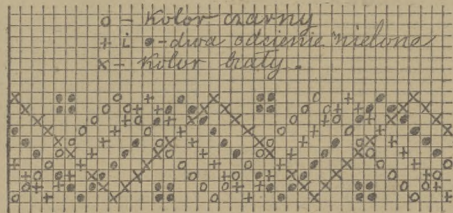 o - kolor czarny
+ i ● - dwa odcienie zielone
x - kolor biały.